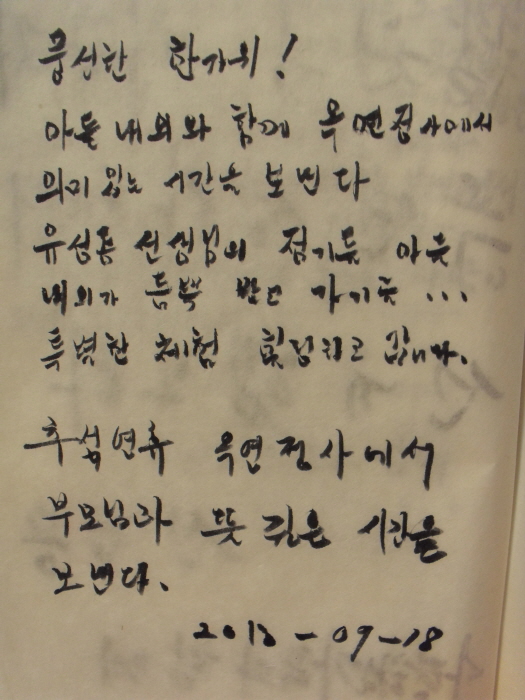 풍성한 한가위!
아들 내외와 함께 옥연정사에서
의미 있는 시간을 보낸다
유성룡 선생님의 정기를 아들
내외가 듬뿍 받고 가기를 ...
특별한 체험 힐링하고 갑니다.
추석연휴 옥연정사에서
부모님과 뜻 깊은 시간을
보낸다.
2013-09-18